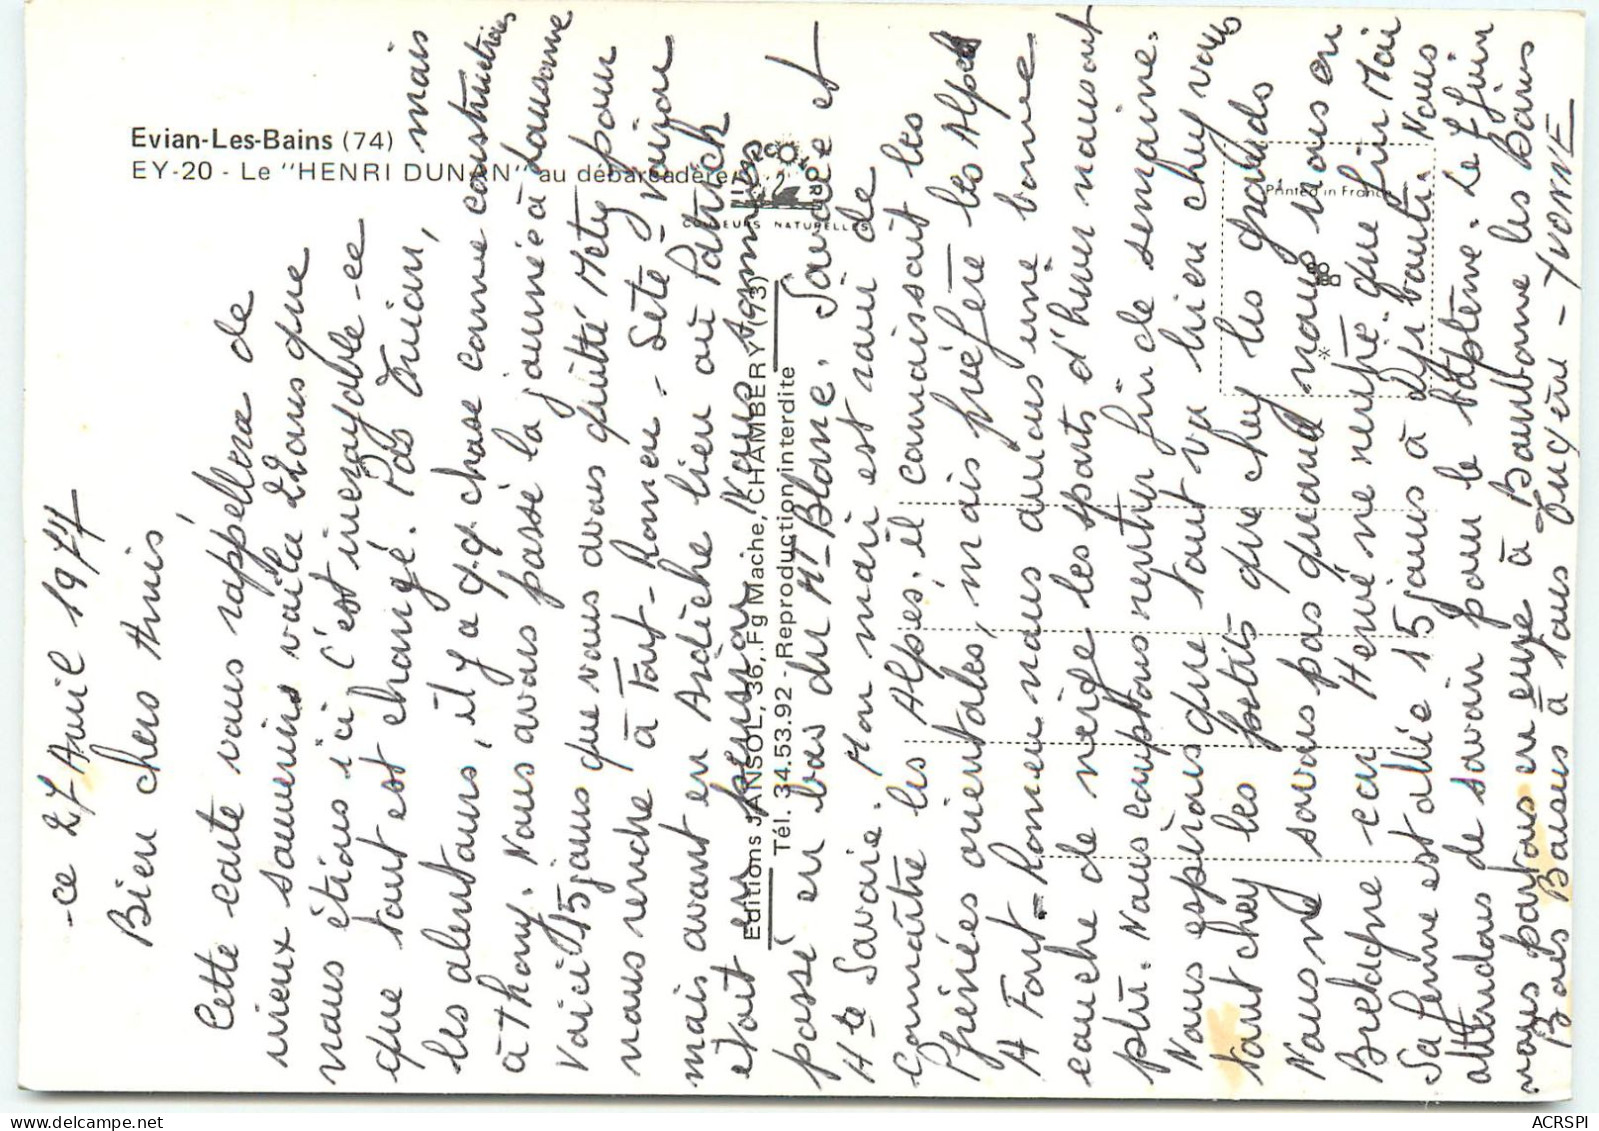 Evian-Les-Bains (74)
EY-20 - Le "HENRI DUNAN" au débarcadère
COULEURS NATURELLES
Editions JANSOL, 36, Fg Mache, CHAMBERY (73)
Tél. 34.53.92 - Reproduction interdite
Printed in France
*
-ce 27 Avril 1977
Bien chers Amis,
Cette carte vous rappellera de
mieux souvenirs voila 22 ans que
nous étions ici c'est incroyable - ce
que tout est changé. Pas Evian, mais
les alentours, il y a qq. chose comme constructions
à Thony. Nous avons passé la journée à Lausanne
Voici 15 jours que vous avons quitté Metz pour
nous rendre à Font-Romeu - Sète - Voiron
mais avant en Ardèche lieu où Patrick
était en pension. Nous sommes
passé en bas du Mt-Blanc. Savoie et
Hte Savoie. Mon mari est ravi de
connaître les Alpes. il connaissait les
Pyrénées orientales, mais préfère les Alpes
A Font-Romeu nous avions une bonne
couche de neige les sports d'hiver nous ont
plu. Nous comptons rentrer fin de semaine.
Nous espérons que tout va bien chez vous
tant chez les petits que chez les grands
Nous ne savons pas quand nous irons en
Bretagne car Hervé ne rentre que fin Mai
Sa femme est allée 15 jours à Djibouti. Nous
attendons de savoir pour le baptême. Le 7 Juin
nous partons en cure à Bourbonne les Bains
Bons Baisers à tous Eugène - YVONNE
ACRSPI